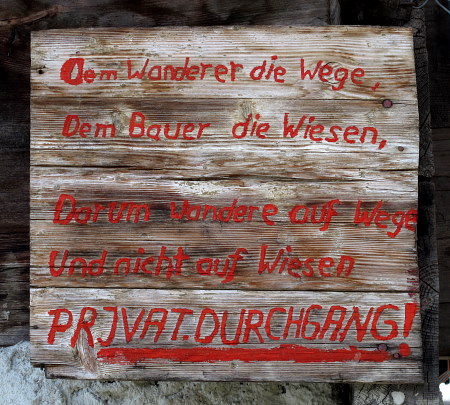 Dem Wanderer die Wege,
Dem Bauer die Wiesen,
Darum wandere auf Wege
Und nicht auf Wiesen
PRIVAT.DURCHGANG!